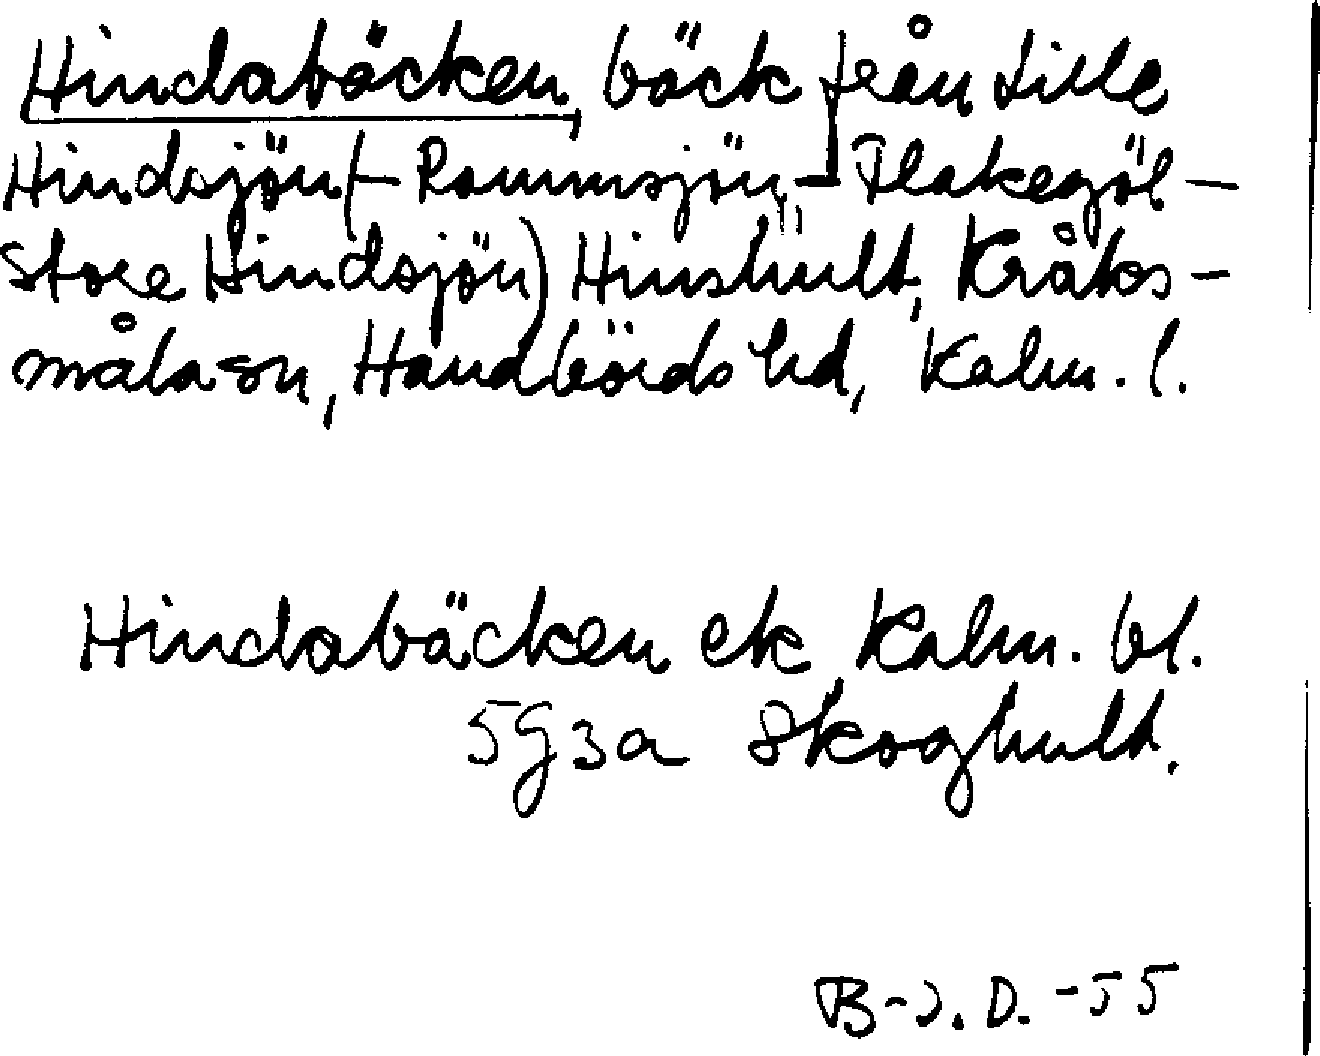 Hindabäcken, bäck från Lille
Hindsjön (- Rammsjön - Flakegöl -
Store Hindsjön) Hinshult, Kråks-
måla sn, Handbörds hd, Kalm. l.
Hindabäcken ek Kalm. bl.
5G3a Skoghult.
B-J. D. -55